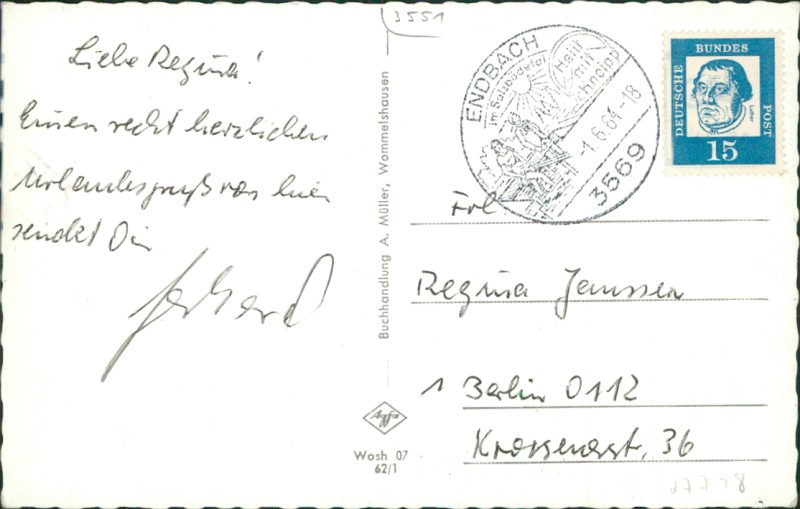 3551
Liebe Regina!
Einen recht herzlichen
Urlaubsgruß von hier
sendet Dir
Gerhard
Buchhandlung A. Müller, Wommelshausen
Agfa
Wosh 07
62/1
ENDBACH
im Salzbödetal
Heilt
mit
-1.6.64-18
3569
DEUTSCHE
BUNDES
POST
Luther
15
Frl.
Regina Janssen
1 Berlin 0112
Krossenerstr. 36